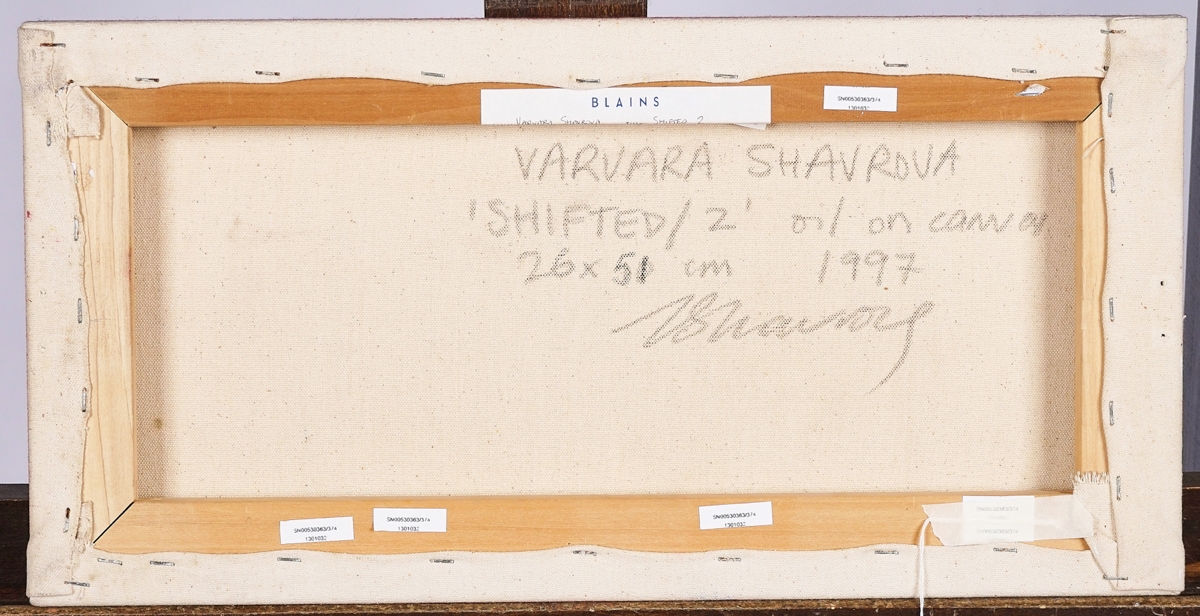 BLAINS
VARVARA SHAVROVA SHIFTED 2
SN00530363/3/4
1301032
VARVARA SHAVROVA
'SHIFTED/2' oil on canvas
26 x 51 cm 1997
VShavrova
SN00530363/3/4
1301032
SN00530363/3/4
1301032
SN00530363/3/4
1301032